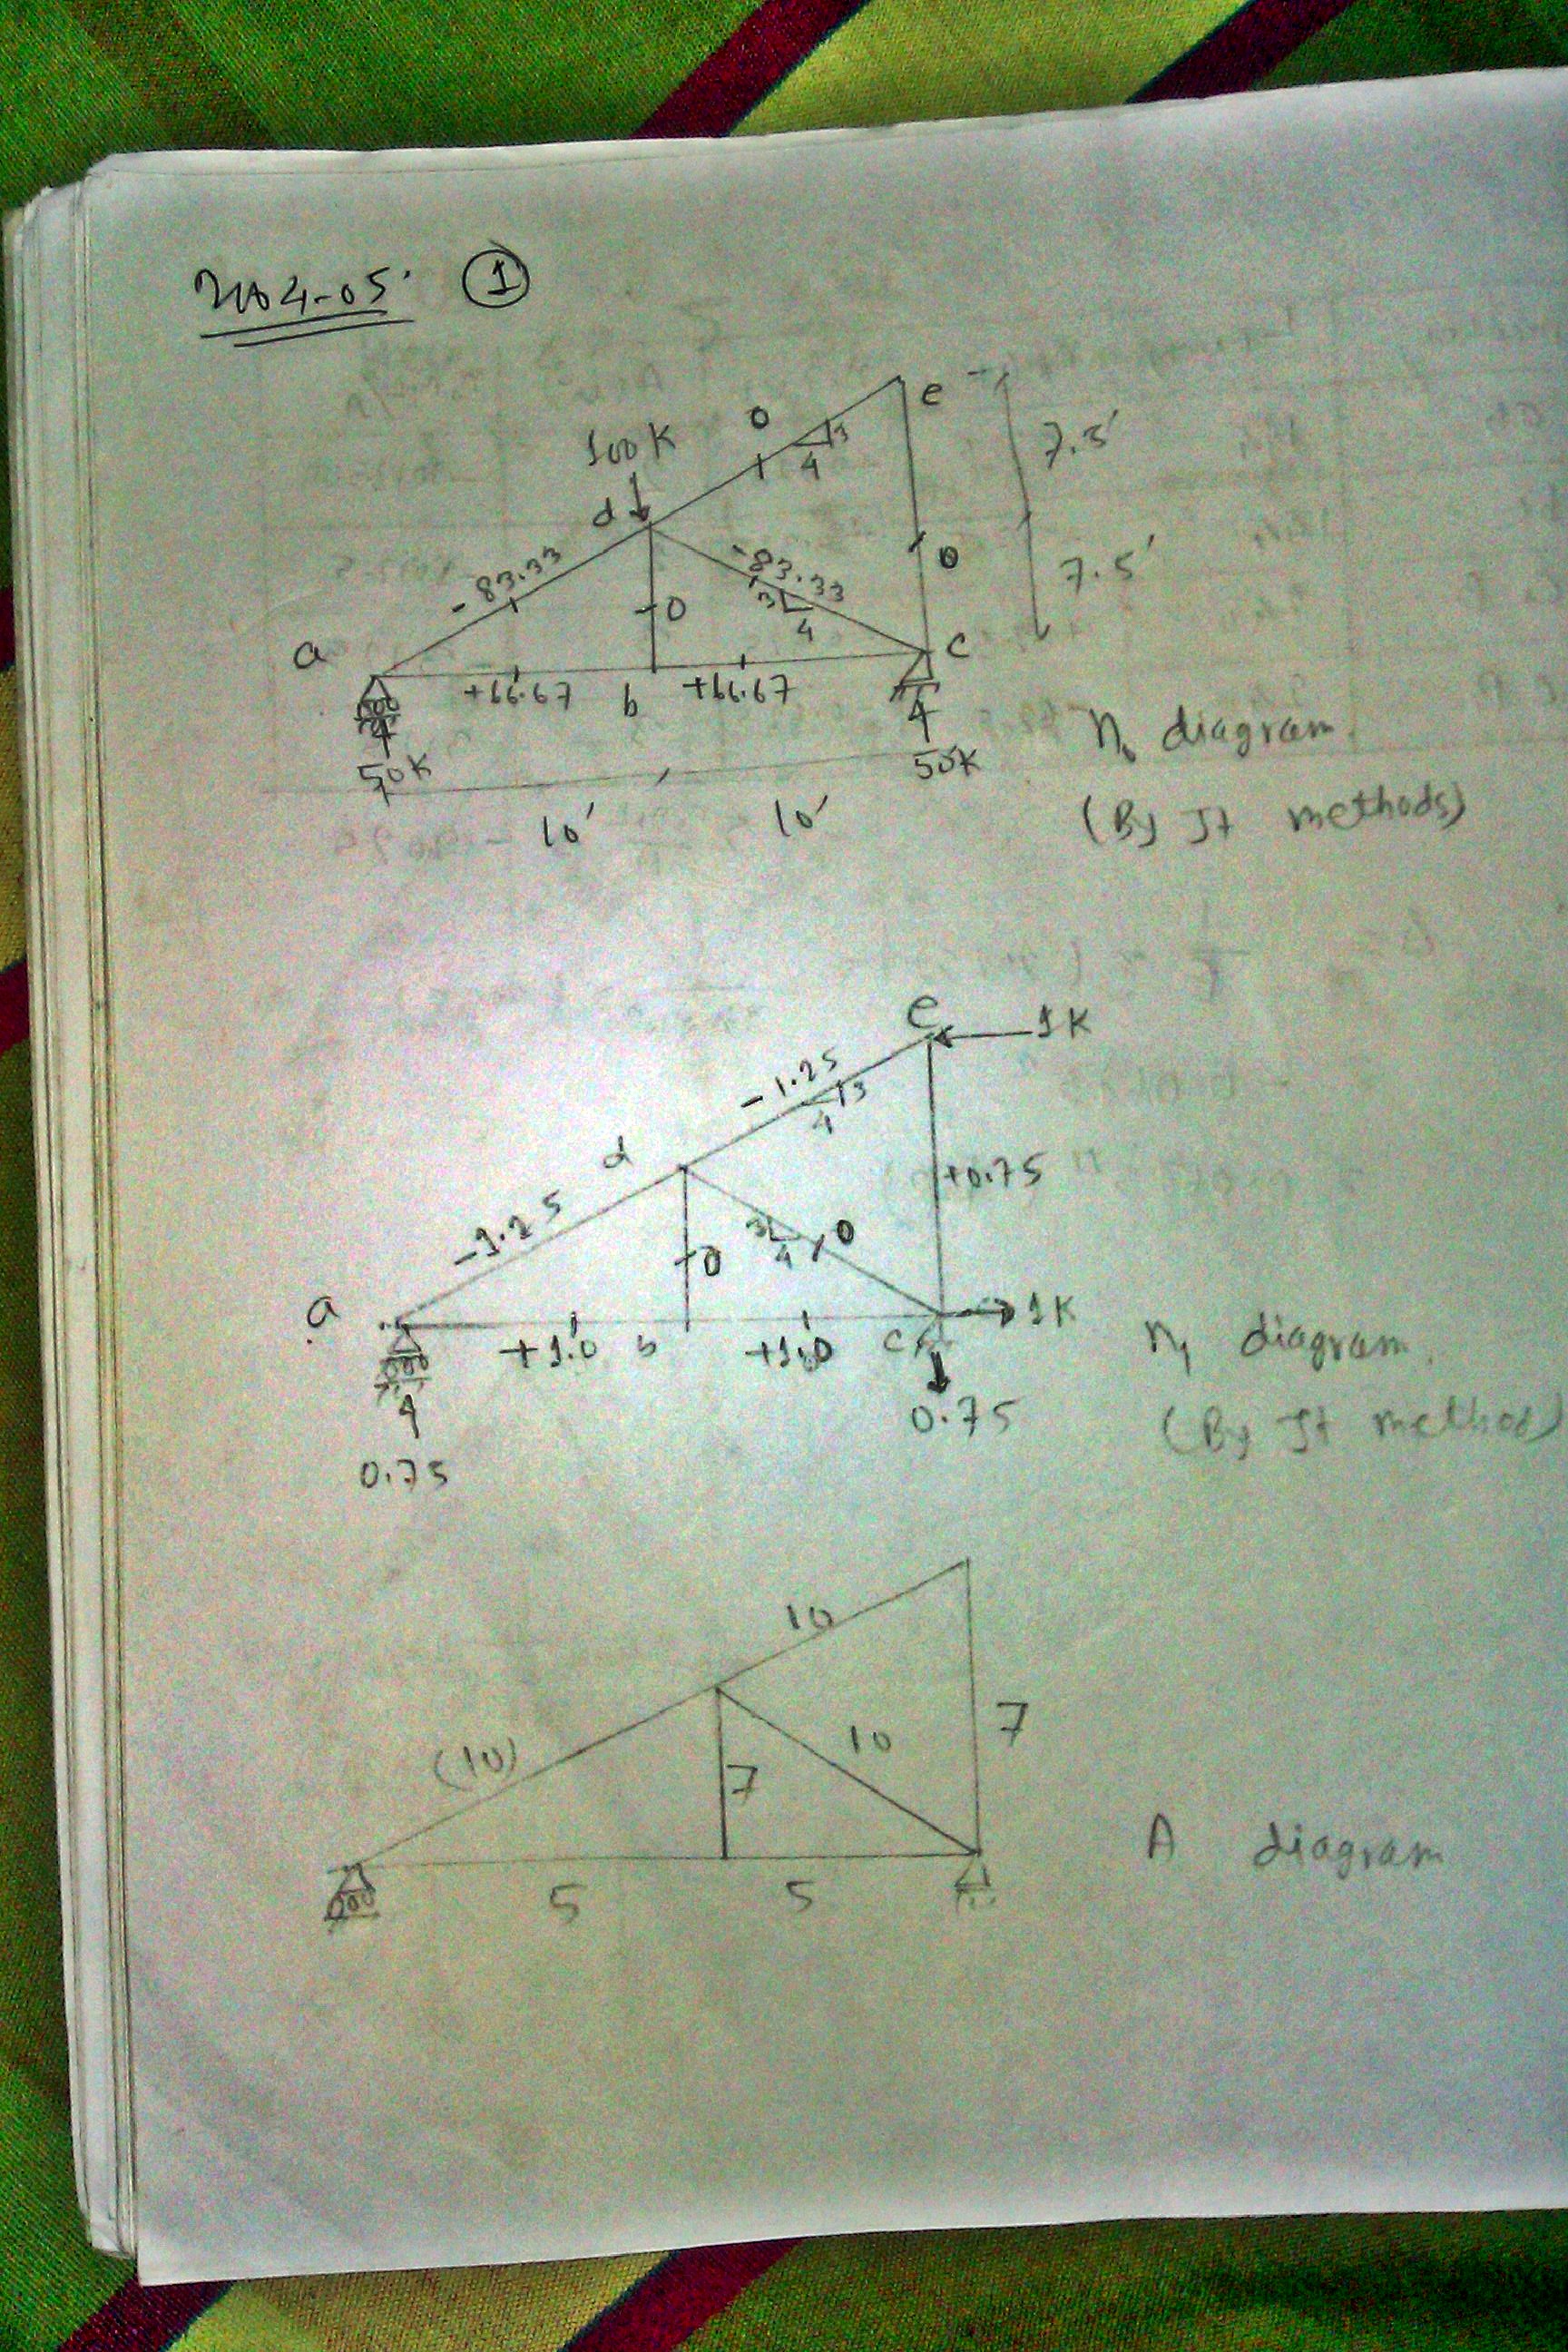 2004-05 ①
e
7.5'
0
3
4
100K
d
-83.33
-83.33
0
3
4
0
7.5'
a
c
+66.67
b
+66.67
50K
50K
10'
10'
n₀ diagram
(By Jt methods)
e
1K
-1.25
3
4
d
+0.75
-1.25
3
4
0
0
a
1K
+1.0
b
+1.0
c
0.75
0.75
n₁ diagram
(By Jt method)
10
7
(10)
10
7
5
5
A diagram